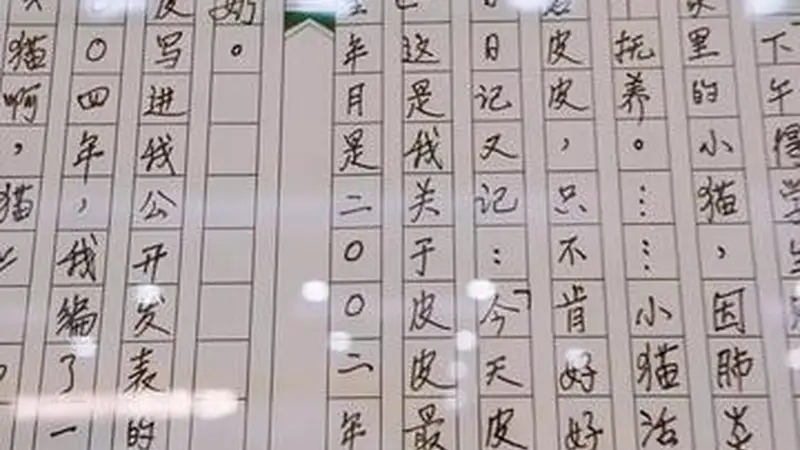 下午得学生
里的小猫，因肺
抚养。……小猫活
皮皮，只不肯好好
日记又记：「今天皮
这是我关于皮皮最
年月是二〇〇二年
奶。
皮写进我公开发表的
〇四年，我编了一
猫啊，猫